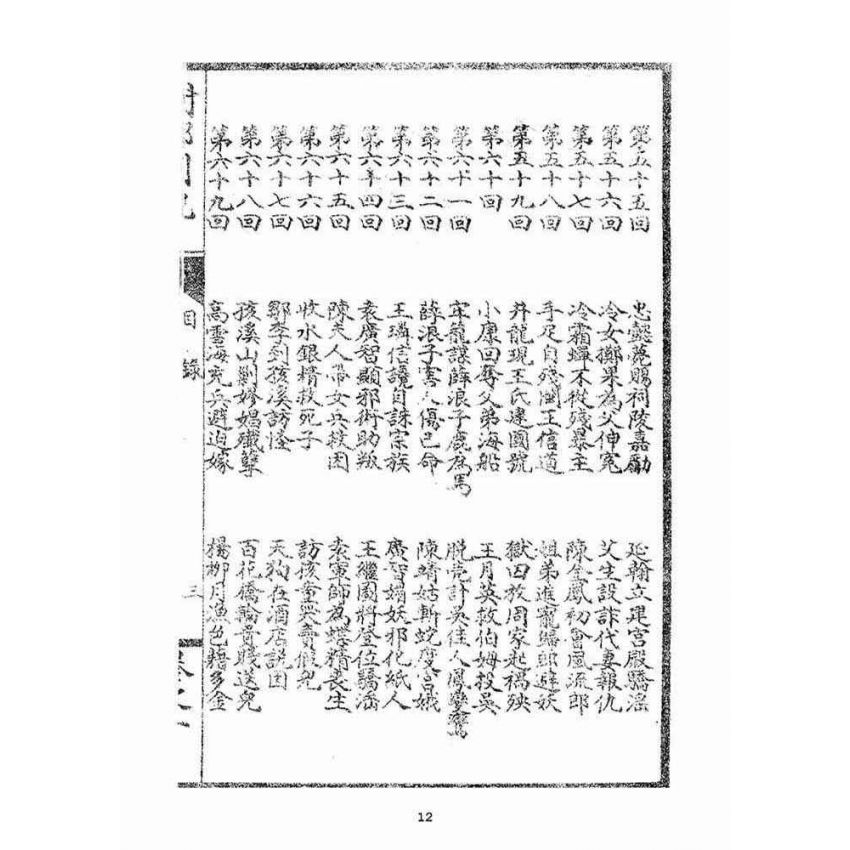 第五十五回 忠懿薨賜祠陵嘉勵 延翰立建宮殿驕淫
第五十六回 冷女擲果為父伸冤 艾生設詐代妻報仇
第五十七回 冷霜蟬不從殘暴主 陳金鳳初會風流郎
第五十八回 手足自殘閩王信道 姐弟進寵歸郎避妖
第五十九回 井龍現王氏建國號 獄囚放周家起禍殃
第六十回 小康回奪父弟海船 王月英救伯姆投吳
第六十一回 牢籠謀薛浪子鹿為馬 脫売計吳佳人鳳變鸞
第六十二回 薛浪子害人傷己命 陳靖姑斬蛇度宮娥
第六十三回 王璘信讒自誅宗族 廣智媚妖邪化紙人
第六十四回 袁廣智顯邪術助叛 王繼圖將登位驕淫
第六十五回 陳夫人帶女兵救因 袁軍師為蝶精喪生
第六十六回 收水銀精救死子 訪孩童哭賣假兒
第六十七回 鄒李到孩溪訪怪 天狗在酒店說因
第六十八回 孩溪山剿嫪娼殲孽 百花橋輪貴賤送兒
第六十九回 高雪海兵避迫嫁 楊柳月漁色藉多金
目錄
三
卷之一
12